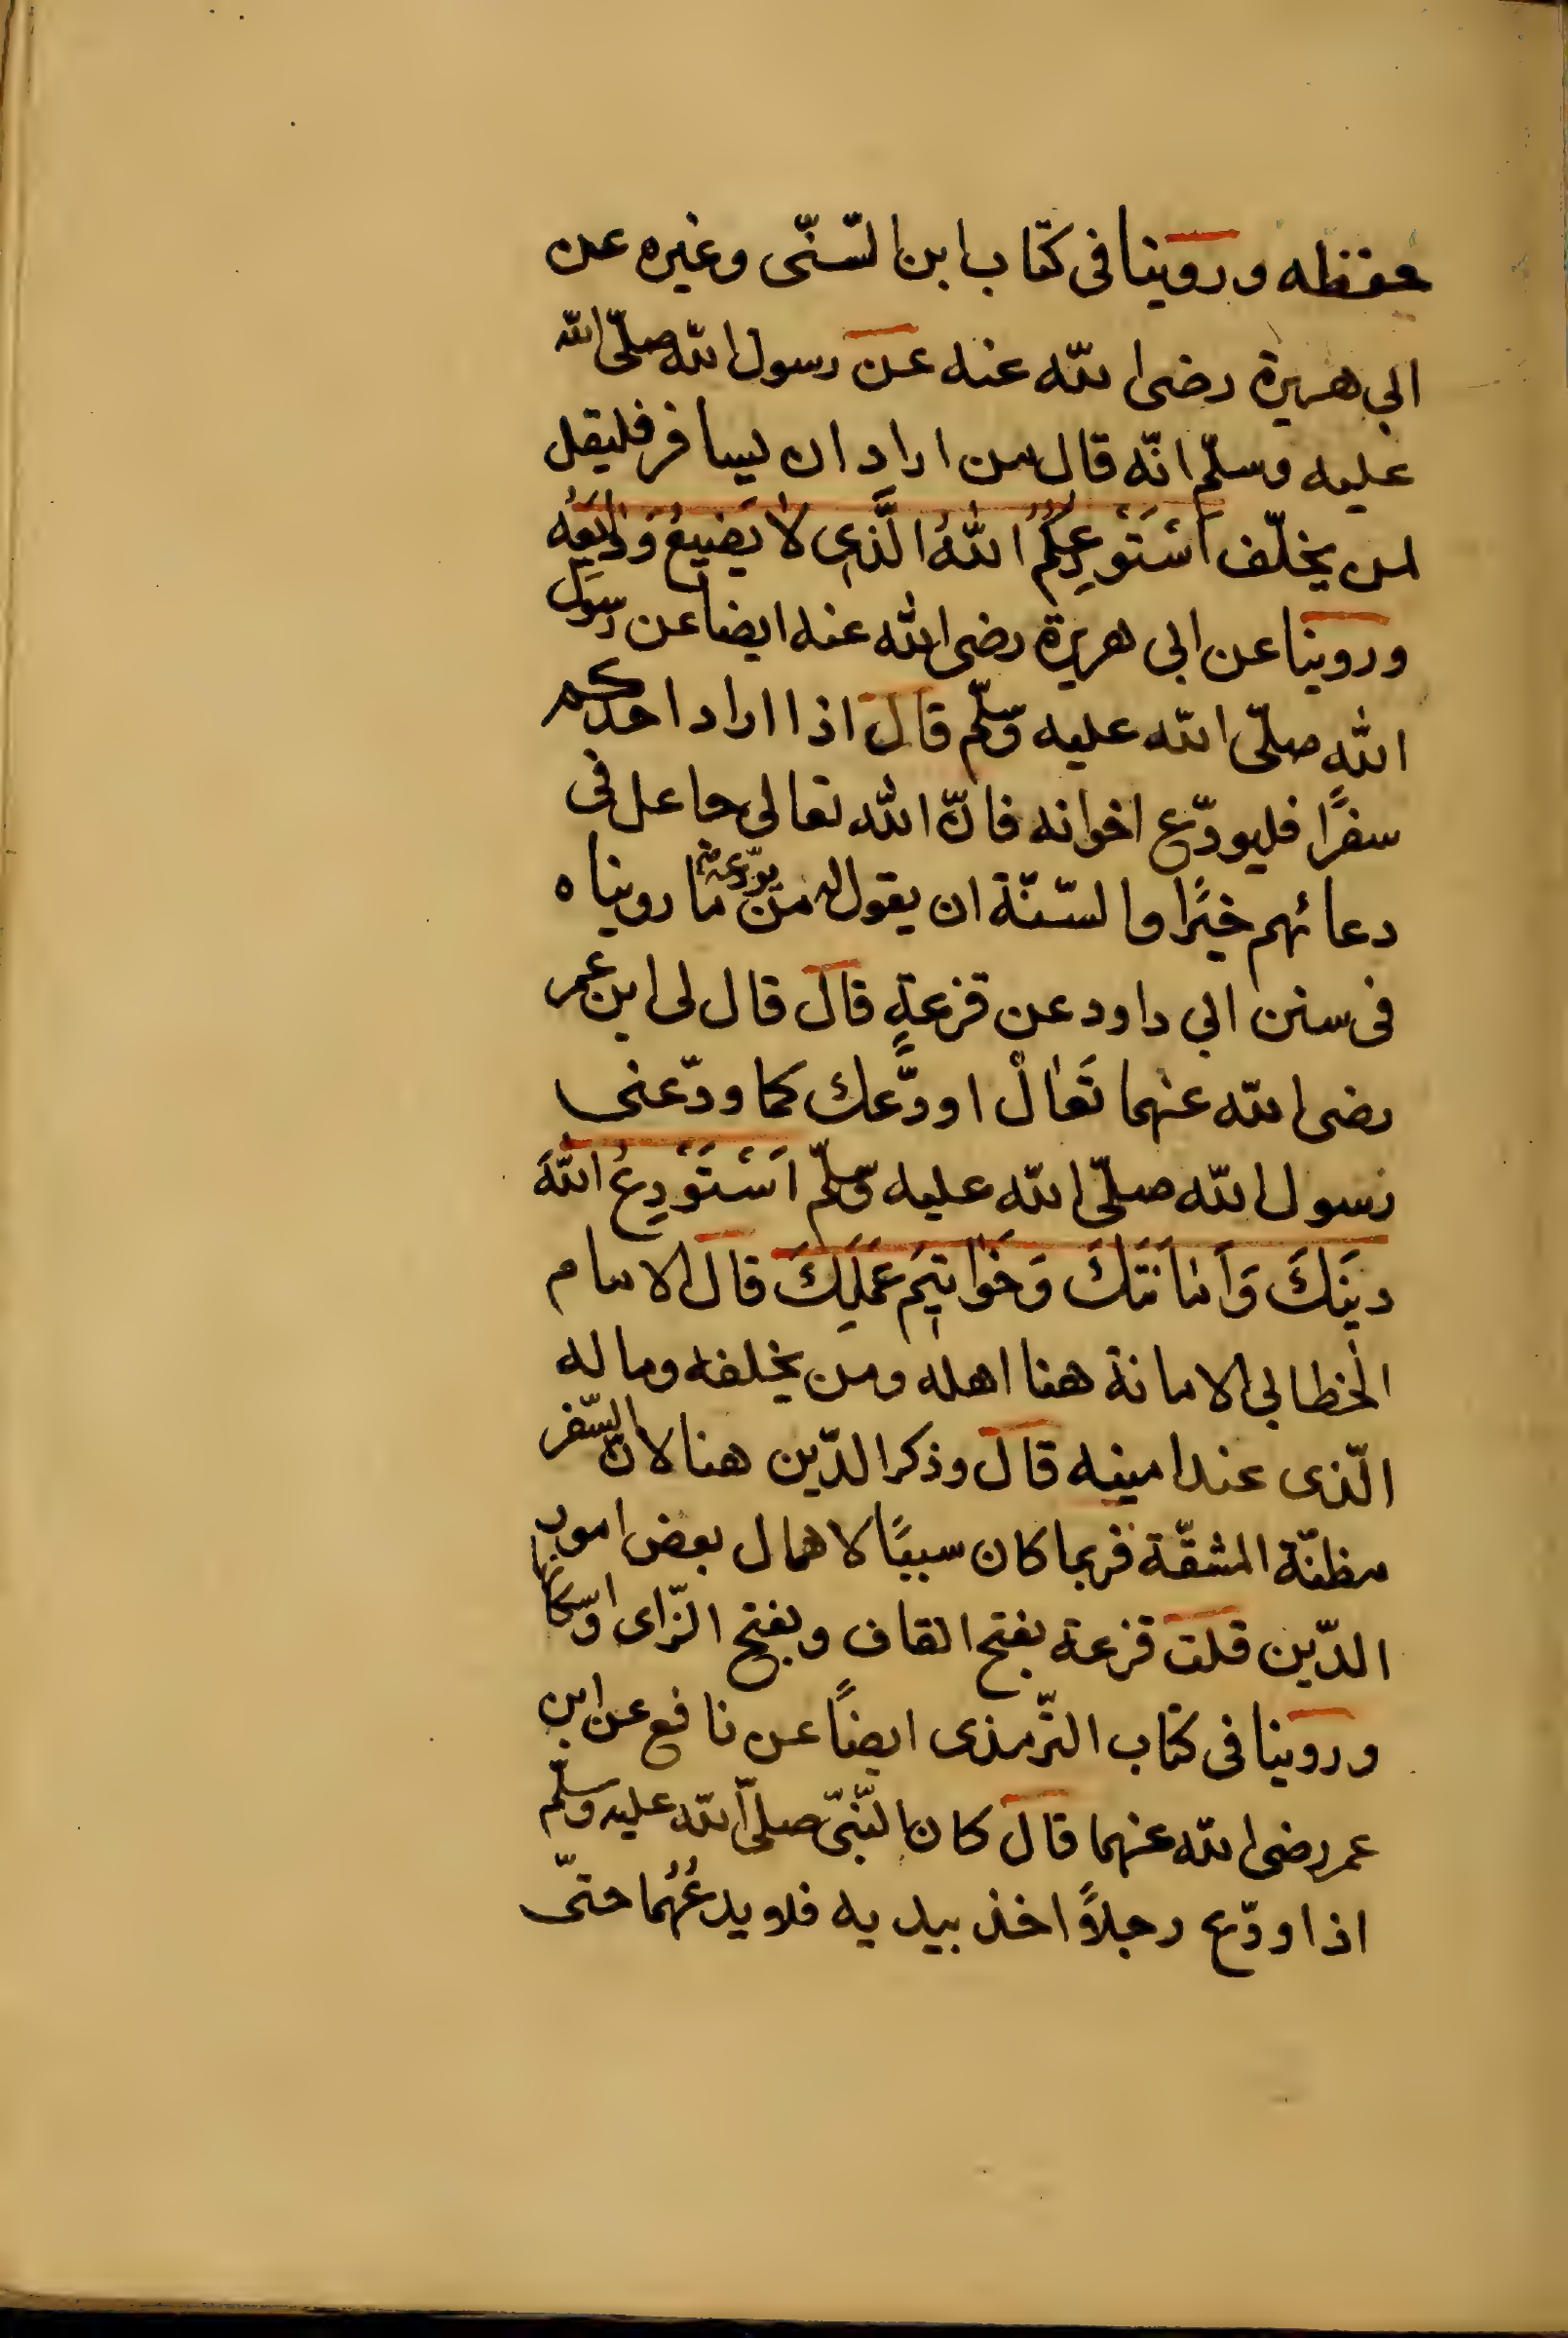 حفظه وروينا فى كتاب ابن السّنّى وغيره عن
ابي هريرة رضى الله عنه عن رسول الله صلّى الله
عليه وسلّم انّه قال من اراد ان يسافر فليقل
لمن يخلّف اَسْتَوْدِعُكُمُ اللّٰهُ الَّذِى لاٰ يَضِيعُ وَدٰايِعُهُ
وروينا عن ابى هريرة رضى الله عنه ايضا عن رسول
اللهِ صلّى الله عليه وسلّم قال اذا اراد احدكم
سفرًا فليودّع اخوانه فانّ الله تعالى جاعل فى
دعائهم خيرًا والسّنّة ان يقول له من يودّعه ما رويناه
فى سنن ابي داود عن قزعةٍ قال قال لى ابن عمر
رضى الله عنهما تَعٰالْ اودّعك كما ودّعنى
رسول الله صلّى الله عليه وسلّم اَسْتَوْدِعُ اللّٰهَ
دينَكَ وَاَمٰانَتَكَ وَخَوٰاتِيمَ عَمَلِكَ قال الامام
الخطابي الامانة هنا اهله ومن يخلفه وماله
الّذى عند امينه قال وذكر الدّين هنا لانّ السّفر
مظنّة المشقّة فربما كان سببًا لاهمال بعض امور
الدّين قلت قزعة بفتح القاف وبفتح الزّاى واسكانها
وروينا فى كتاب التّرمذى ايضاً عن نافع عن ابن
عمر رضى الله عنهما قال كان النّبىّ صلّى الله عليه وسلّم
اذا ودّع رجلاً اخذ بيديه فلا يدعُهُما حتىّ